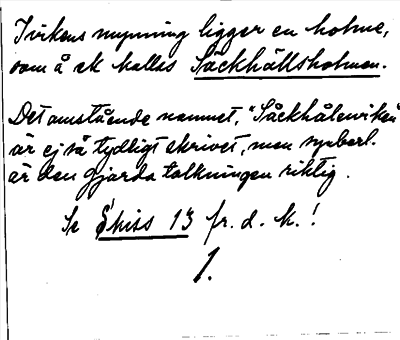 I vikens mynning ligger en holme,
som å sk kallas Säckhållsholmen.
Det omstående namnet, "Såckhålsviken"
är ej så tydligt skrivet, men synberl.
är den gjorda tolkningen riktig.
Se Skiss 13 fr. d. k.!
1.